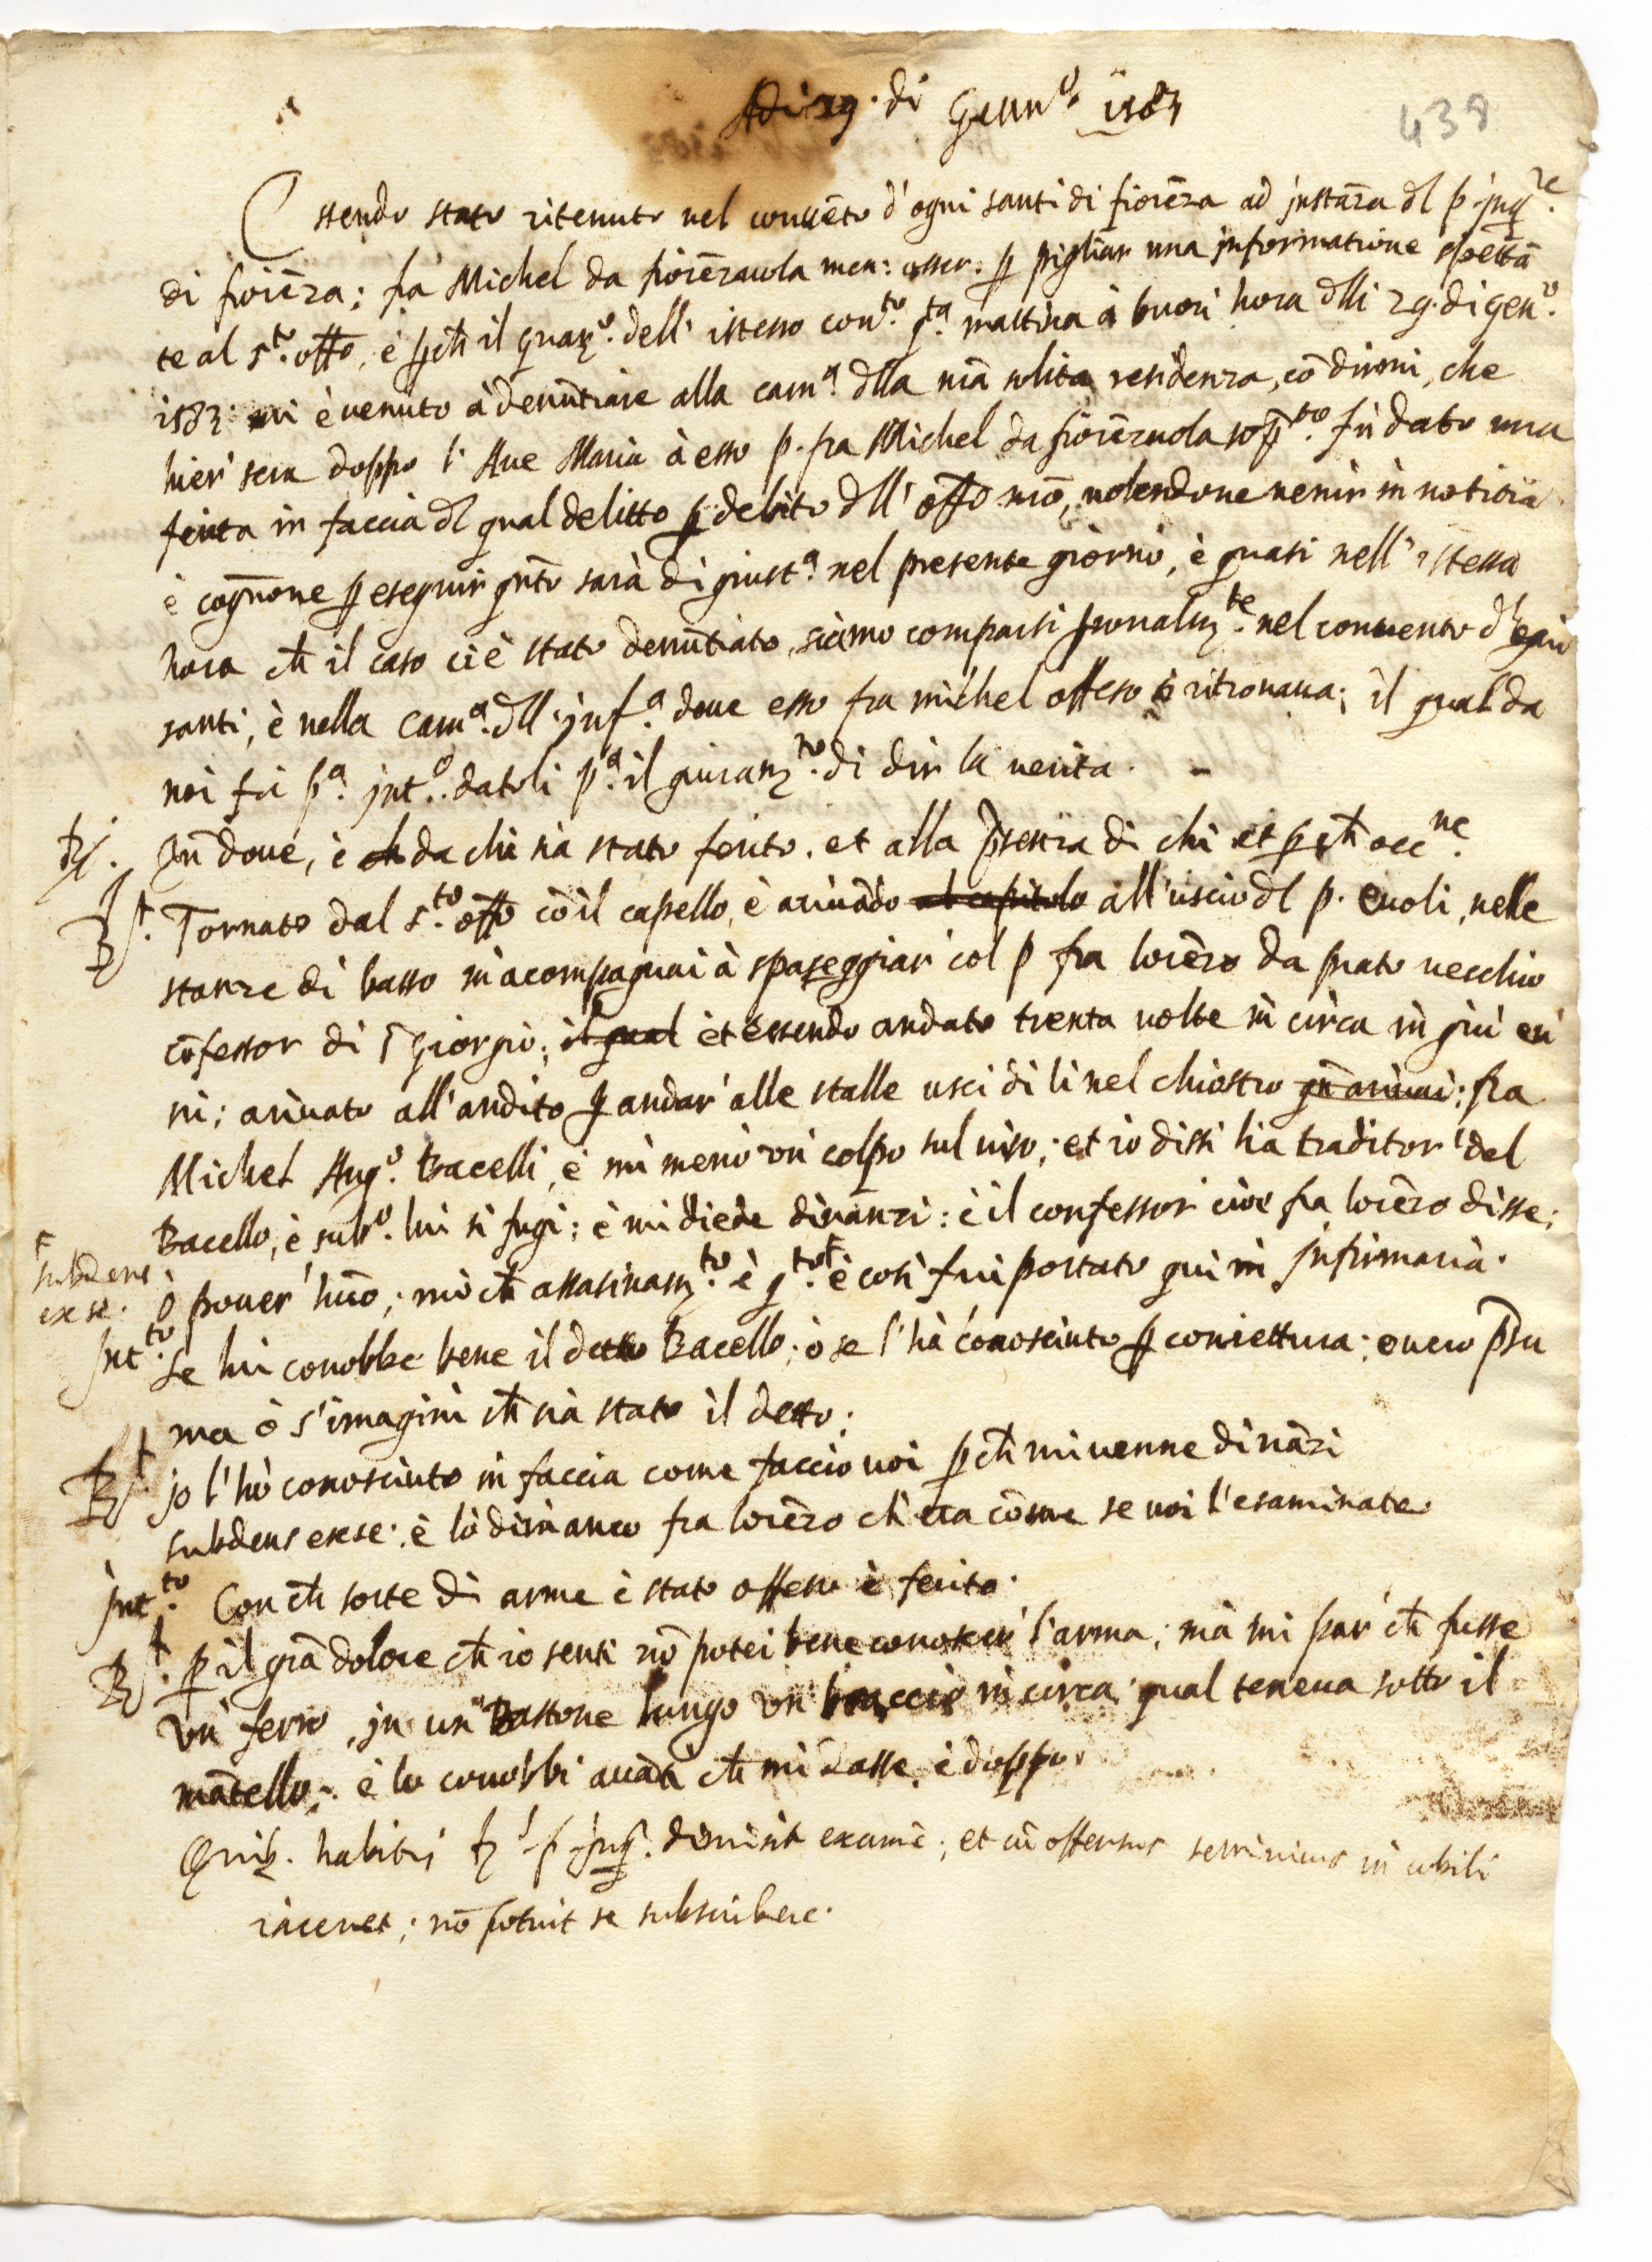 Adi 29. di Genn.o 1583
438
Essendo stato ritenuto nel conuēto d'ogni santi di fiorēza ad justāza dl p. jnq.re
di fiorēza; fra Michel da fiorēzuola men: osser. p pigliar una jnformatione spettā
te al s.to offo, è pch il guar.o dell' istesso con.to q.ta mattina à buon' hora dlli 29. di gen.o
1583. mi è uenuto à denūtiare alla cam.a dlla nrā solita residenza, cō dirmi, che
hier' sera doppo l' Aue Maria à esso p. fra Michel da fiorēzuola sop.to fù dato una
ferita in faccia dl qual delitto p debito dll' offo nrō, uolendone uenir in notitia
è cognone p eseguir qnto sarà di giust.a nel presente giorno, è quasi nell' istessa
hora ch il caso ci è stato denūtiato, siamo comparsi psonalm.te nel conuento d'ogni
santi, è nella cam.a dll' jnf.a doue esso fra michel offeso si ritrouaua; il qual da
noi fù p.a jnt.o datoli p.a il giuram.to di dir la uerita. -
Jn doue, è da chi sia stato ferito. et alla psenza di chi et p ch occ.ne
R.t Tornato dal s.to offo cō il capello, è ariuādo al capitolo all'uscio dl p. euoli, nelle
stanze di basso m'acompagnai à spaseggiar' col p fra lorēzo da prato uecchio
cōfessor di s Giorgio; il qual et essendo andato trenta uolte in circa in giù e'n
sù; ariuato all'andito p andar' alle stalle usci di li nel chiostro qn ariuai: fra
Michel Ang.o Bacelli, è mi menò un' colpo sul uiso; et io dissi hà traditor' del
Bacello, è sub.o lui si fugi; è mi diede dinanzi: è il confessor cioè fra lorēzo disse;
subdens
ex se. ò pouer' huō; mò ch assasinam.to è q.to è cosi fui portato qui in jnfirmaria.
Jnt.to se lui conobbe bene il detto Bacello; ò se l'hà conosciuto p coniettura; ouero psu
ma ò s'imagini ch sia stato il detto;
R.t jo l'hò conosciuto in faccia come faccio uoi p ch mi uenne dināzi
subdens exse: è lò dirà anco fra lorēzo ch era cō me se uoi l'esaminate.
Jnt.to Con ch sorte di arme è stato offeso è ferito.
R.t p il grā dolore ch io senti nō potei bene conoscer' l'arma; mà mi par' ch fusse
un' ferro, jn un bastone lungo un' braccio in circa; qual teneua sotto il
mātello; è lo conobbi auāti ch mi dasse, è doppo.
Quib. habitis p. jnq. dimisit examē; et cū offensus semiuiuus in cubili
iaceret; nō potuit se subscribere.